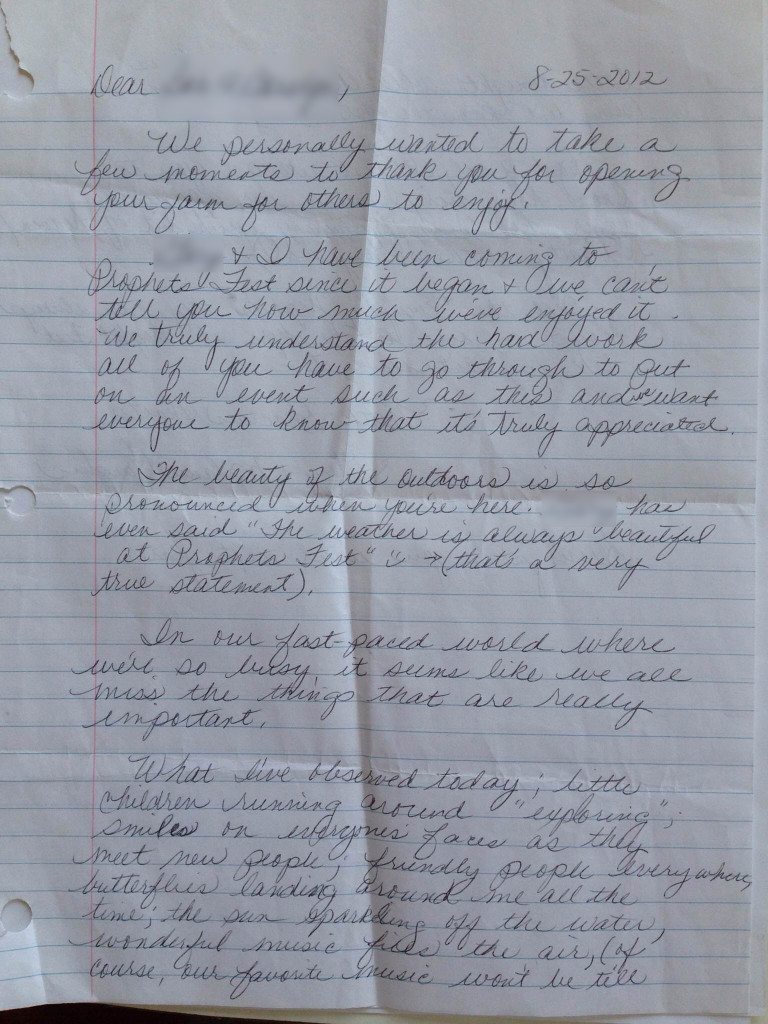 Dear , 8-25-2012
We personally wanted to take a
few moments to thank you for opening
your farm for others to enjoy.
& I have been coming to
Prophets' Fest since it began & we can't
tell you how much we've enjoyed it.
We truly understand the hard work
all of you have to go through to put
on an event such as this and we want
everyone to know that it's truly appreciated.
The beauty of the outdoors is so
pronounced when you're here. has
even said "the weather is always beautiful
at Prophets Fest" ☺ → (that's a very
true statement).
In our fast-paced world where
we're so busy, it seems like we all
miss the things that are really
important.
What I've observed today; little
children running around "exploring";
smiles on everyones faces as they
meet new people; friendly people everywhere,
butterflies landing around me all the
time; the sun sparkling off the water,
wonderful music fills the air, (of
course, our favorite music won't be till